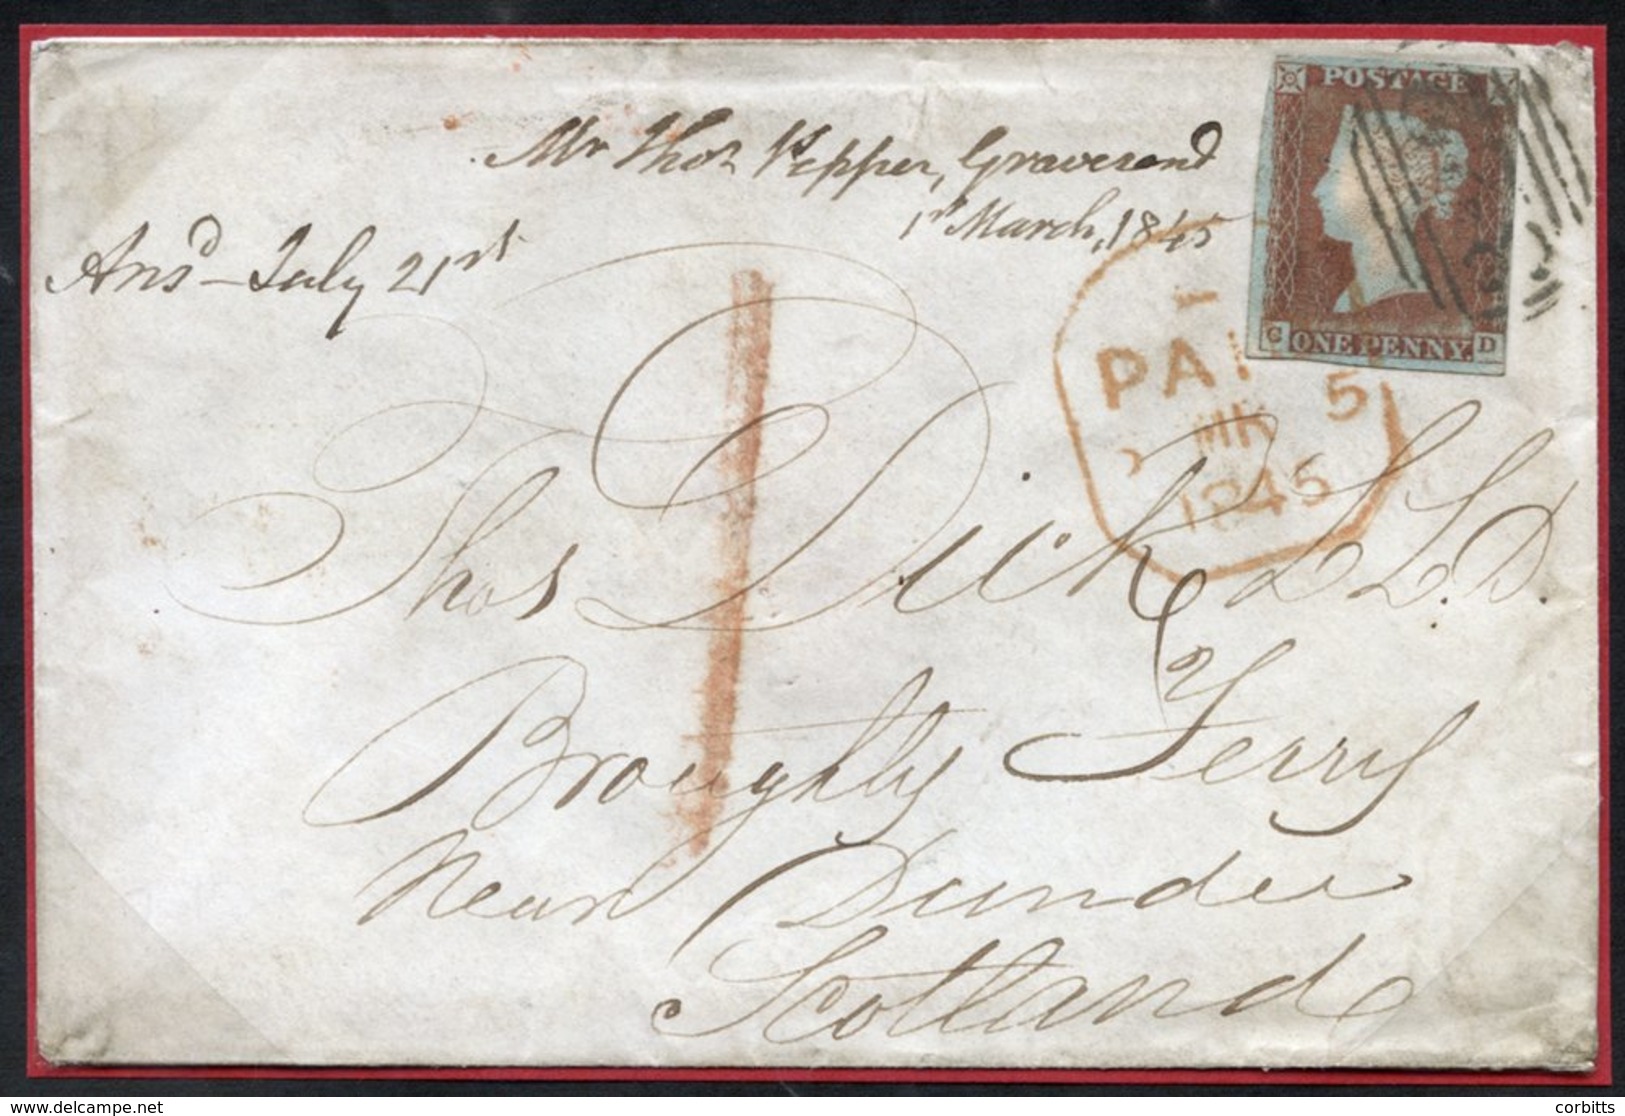 POSTAGE
Mr Thos Pepper, Gravesend
1st March, 1845
Ansd - July 21st
C ONE PENNY. D
PAI
5
MR
1845
Thos Dick LL.D.
Broughty Ferry
Near Dundee
Scotland
© www.delcampe.net
corbitts